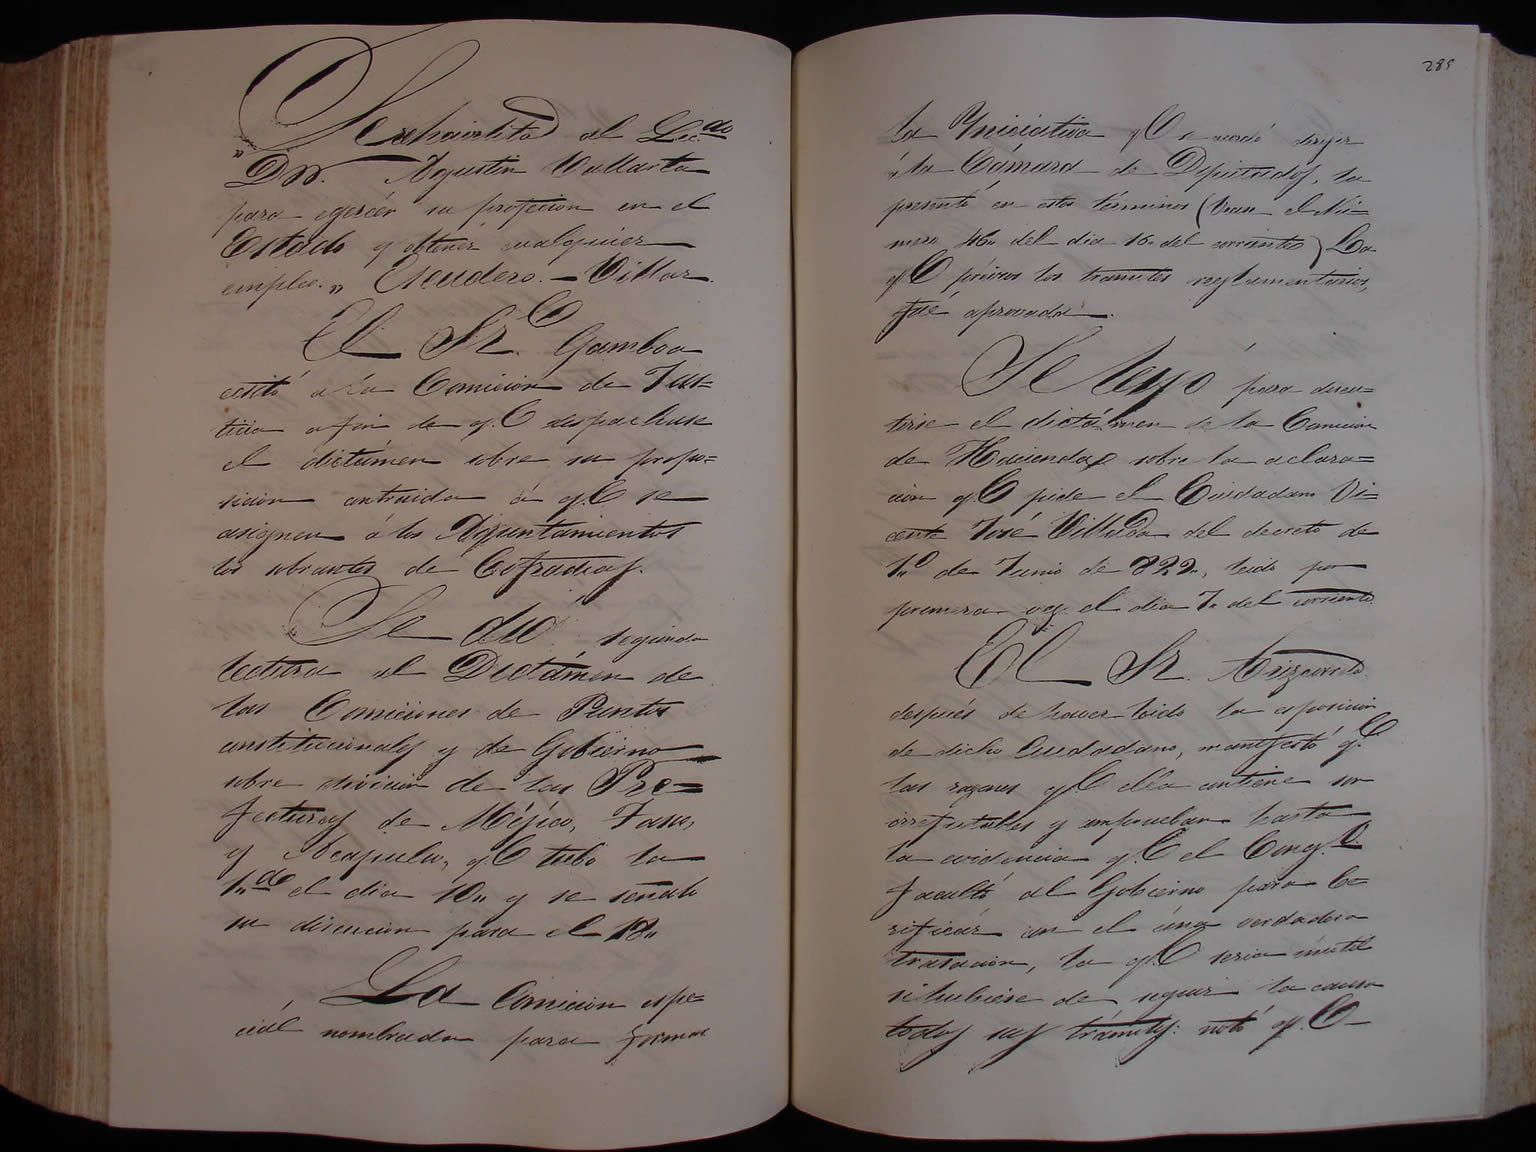 Se rehavilita al Lic.do
"Dn. Agustin Vallarta
para egercér su profecion en el
Estado y obtenér cualquier
empleo." Escudero. - Villar.
El Sr. Gamboa
ecsitó a la Comicion de Jus=
ticia a fin de q.e despachase
el dictámen sobre su propo=
sicion contraida á q.e se
asignen á los Ayuntamientos
los sobrantes de Cofradias.
Se dió segunda
lectura al Dictámen de
las Comiciones de Puntos
constitucionales y de Gobierno
sobre divicion de las Pre=
fecturas de Méjico, Tasco,
y Acapulco, q.e tubo la
1.a el dia 10,, y se señaló
su discucion para el 18,,
La Comicion espe=
ciál nombrada para formar
285
la Yniciativa q.e se acordó dirijir
á la Cámara de Diputados, la
presentó en estos términos (Vean el Nú=
mero 16. del dia 16. del corriente) La
q.e prévios los tramites reglamentarios,
fué aprovada.
Se leyó para discu=
tirse el dictámen de la Comicion
de Hacienda sobre la aclara=
cion q.e pide el Ciudadano Vi=
cente José Villada del decreto de
1.o de Junio de 822,, leido por
primera vez el dia 7. del corriente.
El Sr. Arizcorreta
después de haver leido la esposicion
de dicho Ciudadano, manifestó q.e
las razones q.e ella contiene son
irrefutables y comprueban hasta
la evidencia q.e el Cong.o
facultó al Gobierno para be=
rificár con el una verdadera
trasacion, la q.e seria inutil
si hubiése de seguir la causa
todos sus trámites: notó q.e